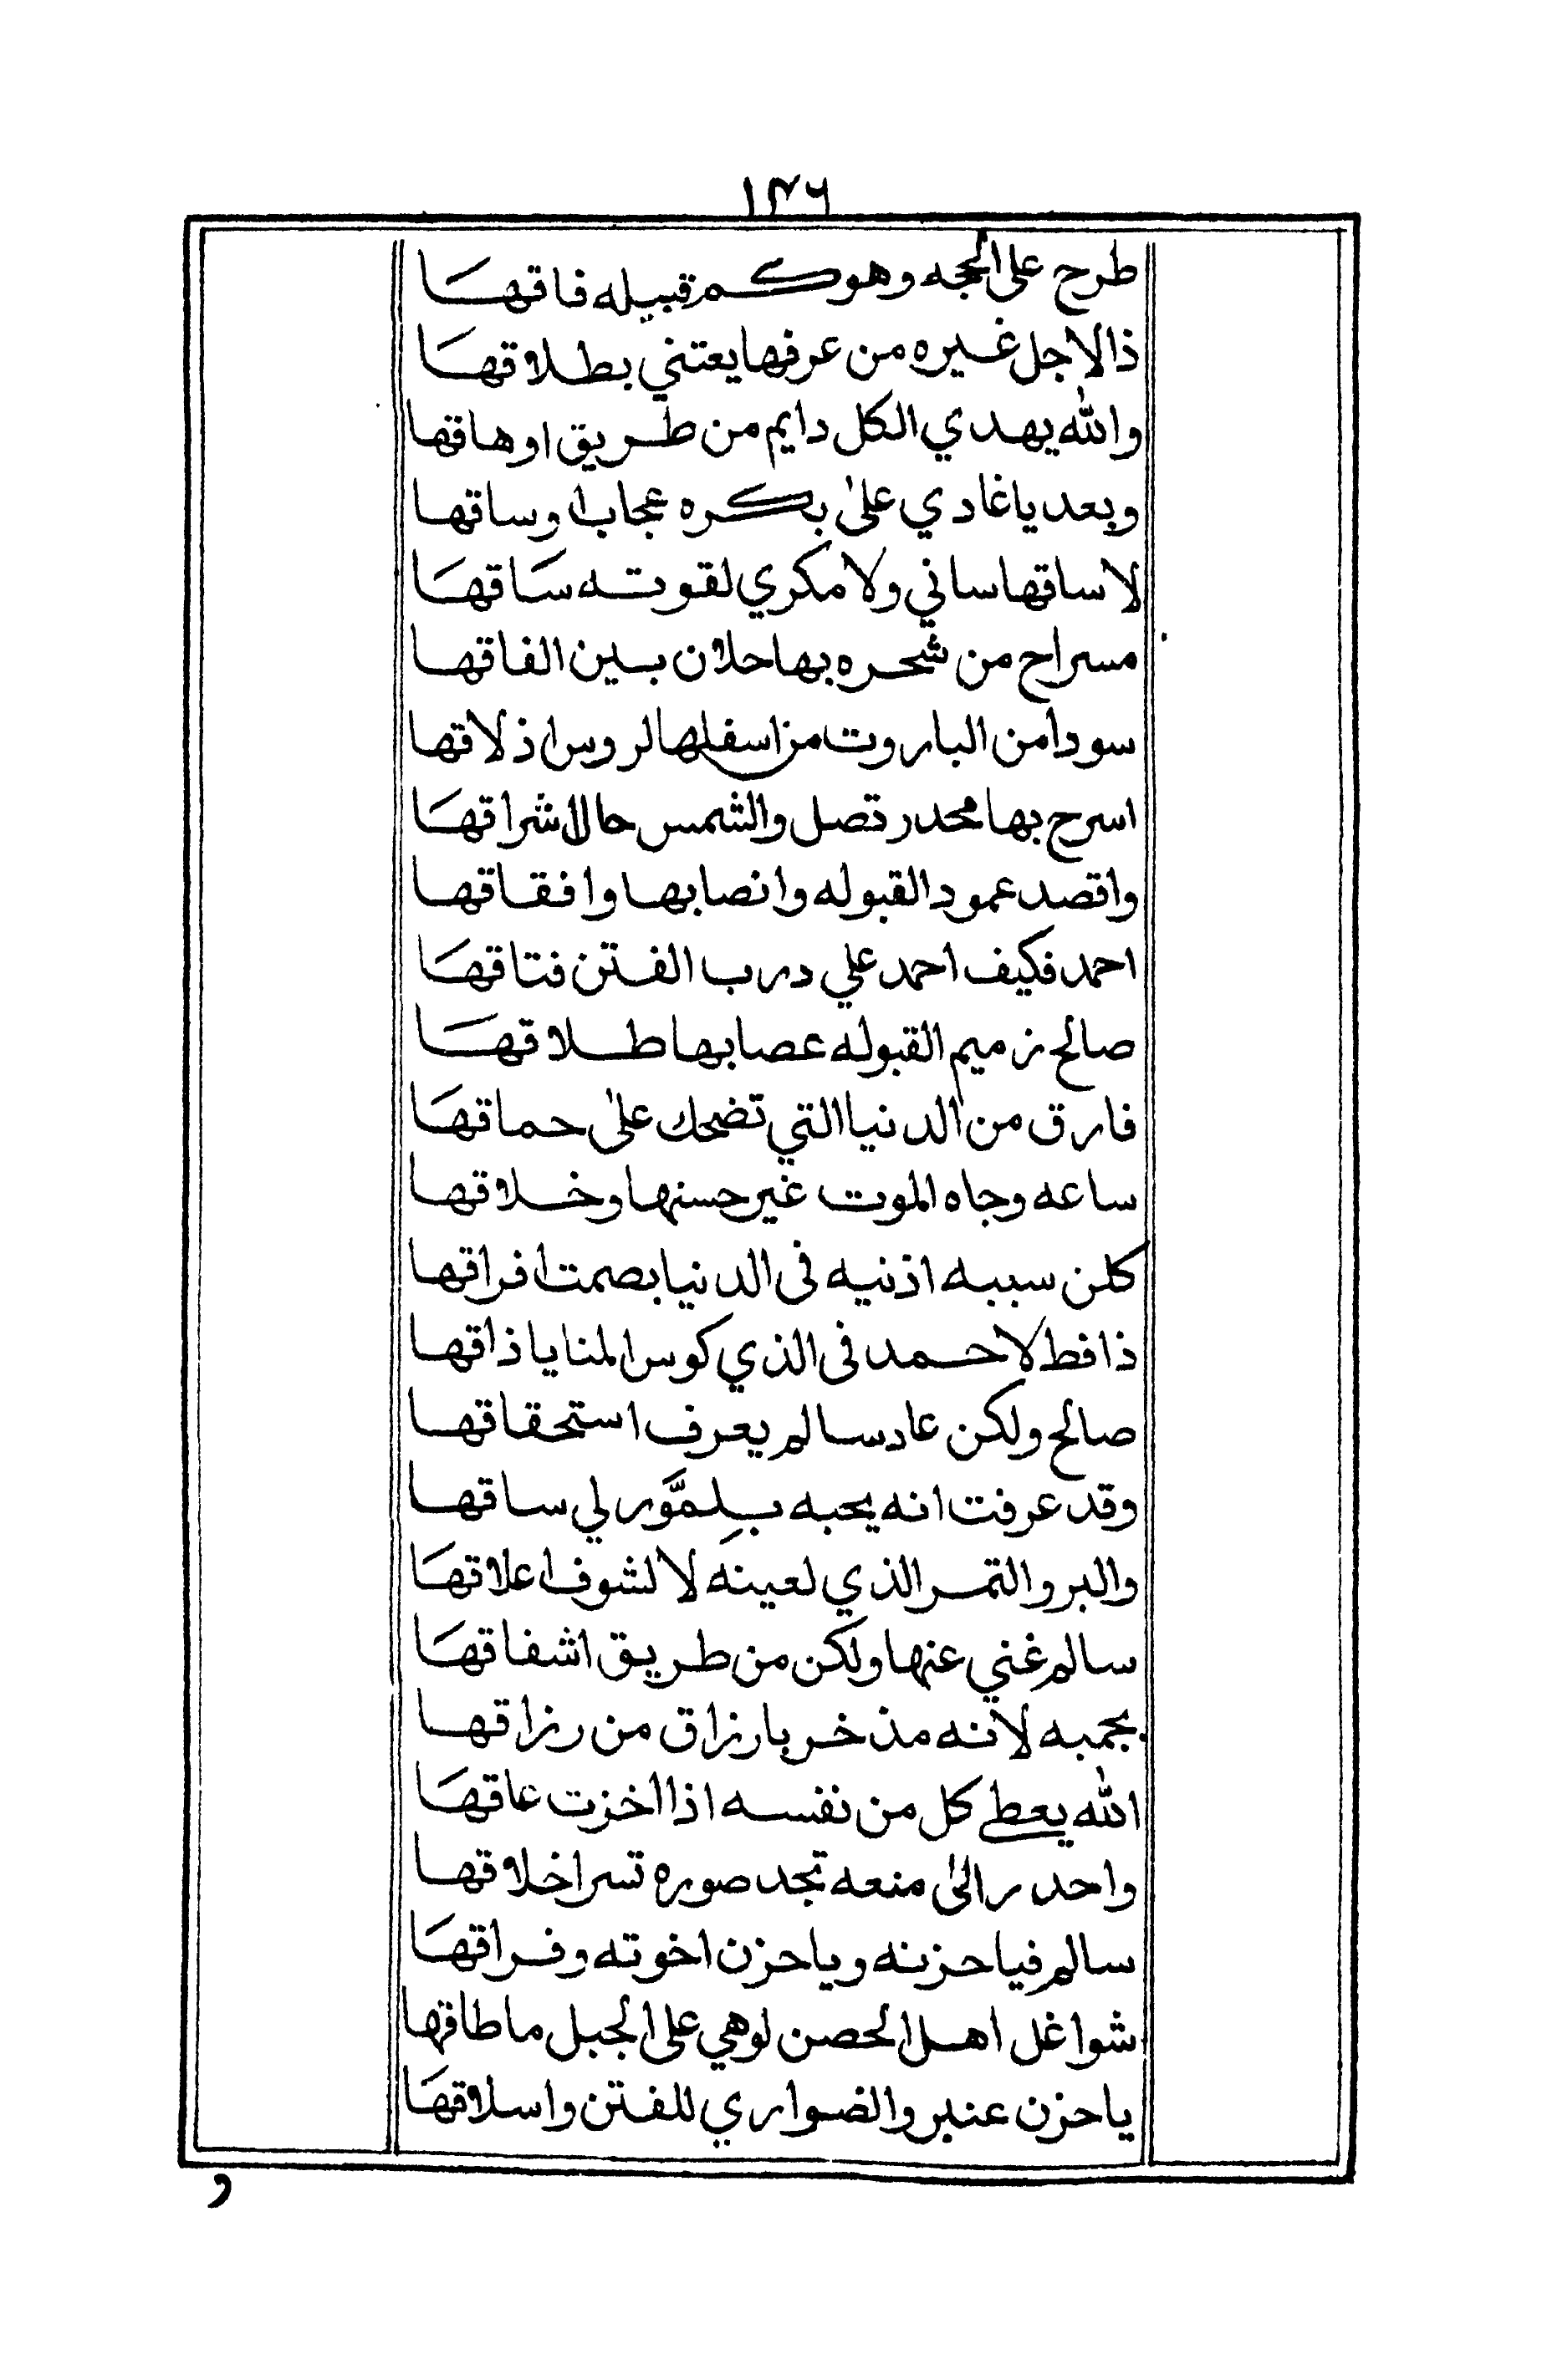 ١٣٦
طرح على الحجه وهو كم قبيله فاقها
ذا لاجل غيره من عرفها يعتني بطلاقها
والله يهدي الكل دايم من طريق اوهاقها
وبعد ياغادي على بكره عجاب اوساقها
لا ساقها ساني ولا مكري لقوته ساقها
مسراح من شحره بها حلان بين الفاقها
سودا من الباروت من اسفلها لروس اذلاقها
اسرح بها محدر تصل والشمس حال اشراقها
واقصد عمود القبوله وانصابها وافقاقها
احمد فكيف احمد علي درب الفتن فتاقها
صالح زميم القبوله عصابها طلاقها
فارق من الدنيا التي تضحك على حماقها
ساعه وجاه الموت غير حسنها وخلاقها
كلن سببه اذنيه فى الدنيا بصمت افراقها
ذا فط لاحمد فى الذي كوس المنايا ذاقها
صالح ولكن عاد سالم يعرف استحقاقها
وقد عرفت انه يحبه بِلمَّور لي ساقها
والبر والتمر الذي لعينه لا لشوف اعلاقها
سالم غني عنها ولكن من طريق اشفاقها
بجمبه لانه مذخر بارزاق من رزاقها
الله يعطي كل من نفسه اذا اخزت عاقها
واحد رالى منعه تجد صوره تسر اخلاقها
سالم فيا حزنه ويا حزن اخوته وفراقها
شواغل اهل الحصن لو هي على الجبل ما طاقها
يا حزن عنبر والضواري للفتن واسلاقها
و